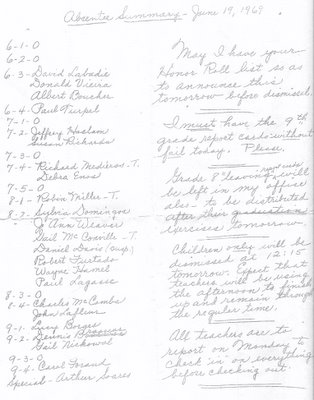 Absentee Summary - June 19, 1969
6-1-0
6-2-0
6-3-David Labadie
Donald Vieira
Albert Boucher
6-4-Paul Turpel
7-1-0
7-2-Jeffrey Haslam
Susan Richards
7-3-0
7-4-Richard Medieros-T.
Debra Enos
7-5-0
8-1-Robin Miller-T.
8-2-Sylvia Domingos
J Ann Weaver
Gail Mc Conville-T.
Daniel David (susp.)
Robert Furtado
Wayne Hamel
Paul Lagasse
8-3-0
8-4-Charles McCombs
John Lafleur
9-1-Lucy Borges
9-2-Dennis
Gail Nickowal
9-3-0
9-4-Carol
Special-Arthur Soares
May I have your
Honor Roll list so as
to announce this
tomorrow before dismissal.
I must have the 9th
grade report cards without
fail today. Please.
Grade 8 "leaving will
be left in my office
also - to be distributed
after their graduation
exercises tomorrow.
Children only will be
dismissed at 12:15
tomorrow. Expect that
teachers will be using
the afternoon to finish
up and remain through
the regular time.
All teachers are to
report on Monday to
"check in" on everything
before checking out.